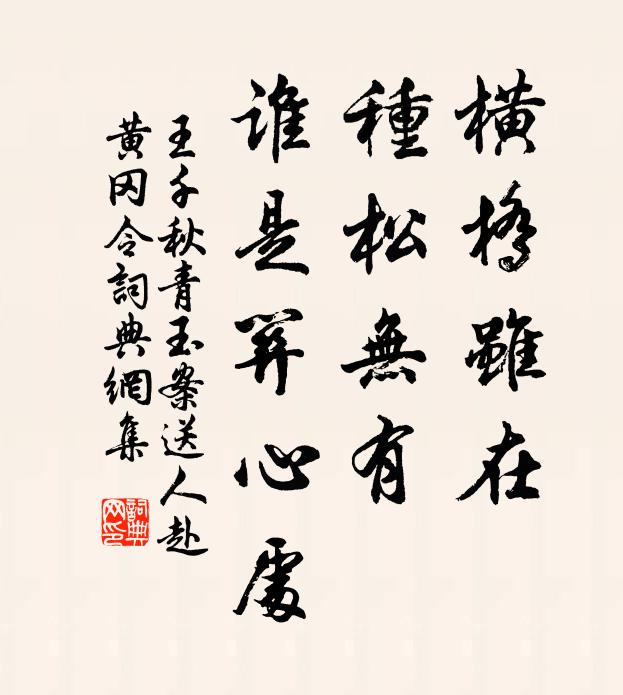 橫橋雖在
種松無有
誰是關心處
王千秋青玉案送人赴
黃冈令詞典網集
詞典
网印